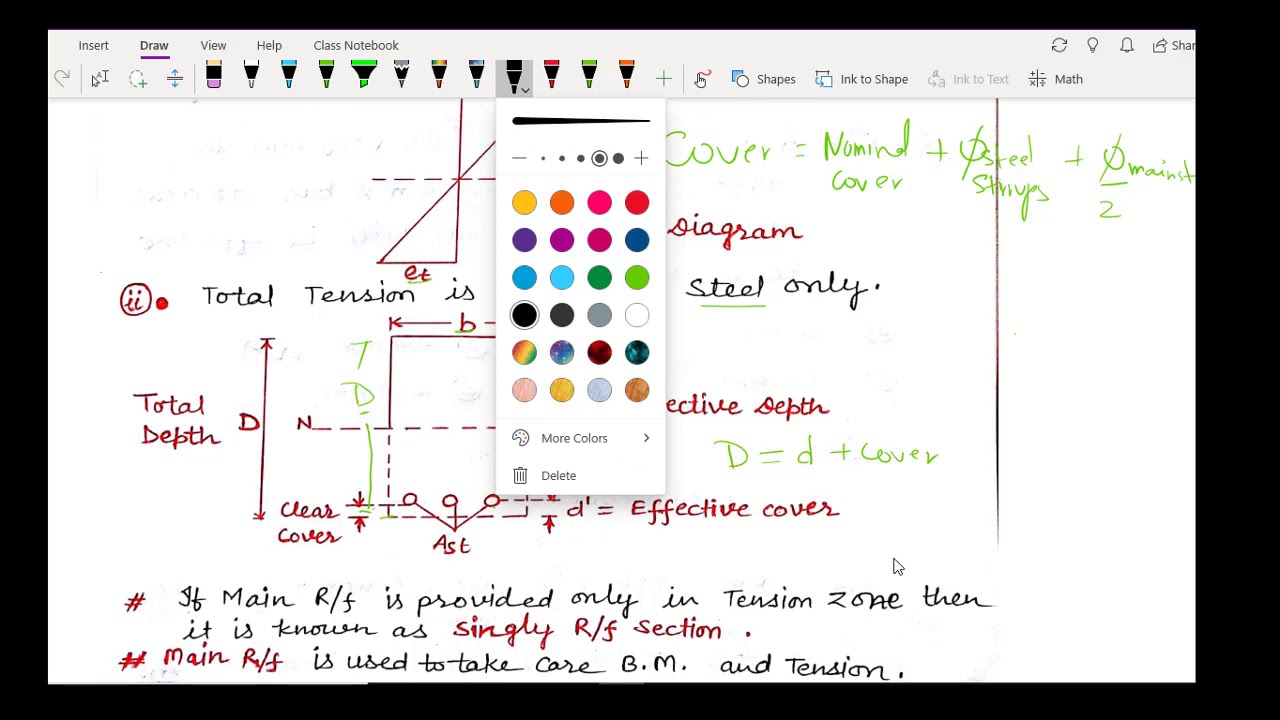 Insert Draw View Help Class Notebook Shar
Shapes Ink to Shape Ink to Text Math
Cover = Nominal cover + φ steel + φ mainst
Stirrups 2
Diagram
et
ii. Total Tension is steel only.
b
T
D
Total Depth D
N
ective Depth
D = d + cover
More Colors
Delete
Clear cover
d' = Effective cover
Ast
# If Main R/f is provided only in Tension zone then
it is known as Singly R/f Section.
# Main R/f is used to take care B.M. and Tension.